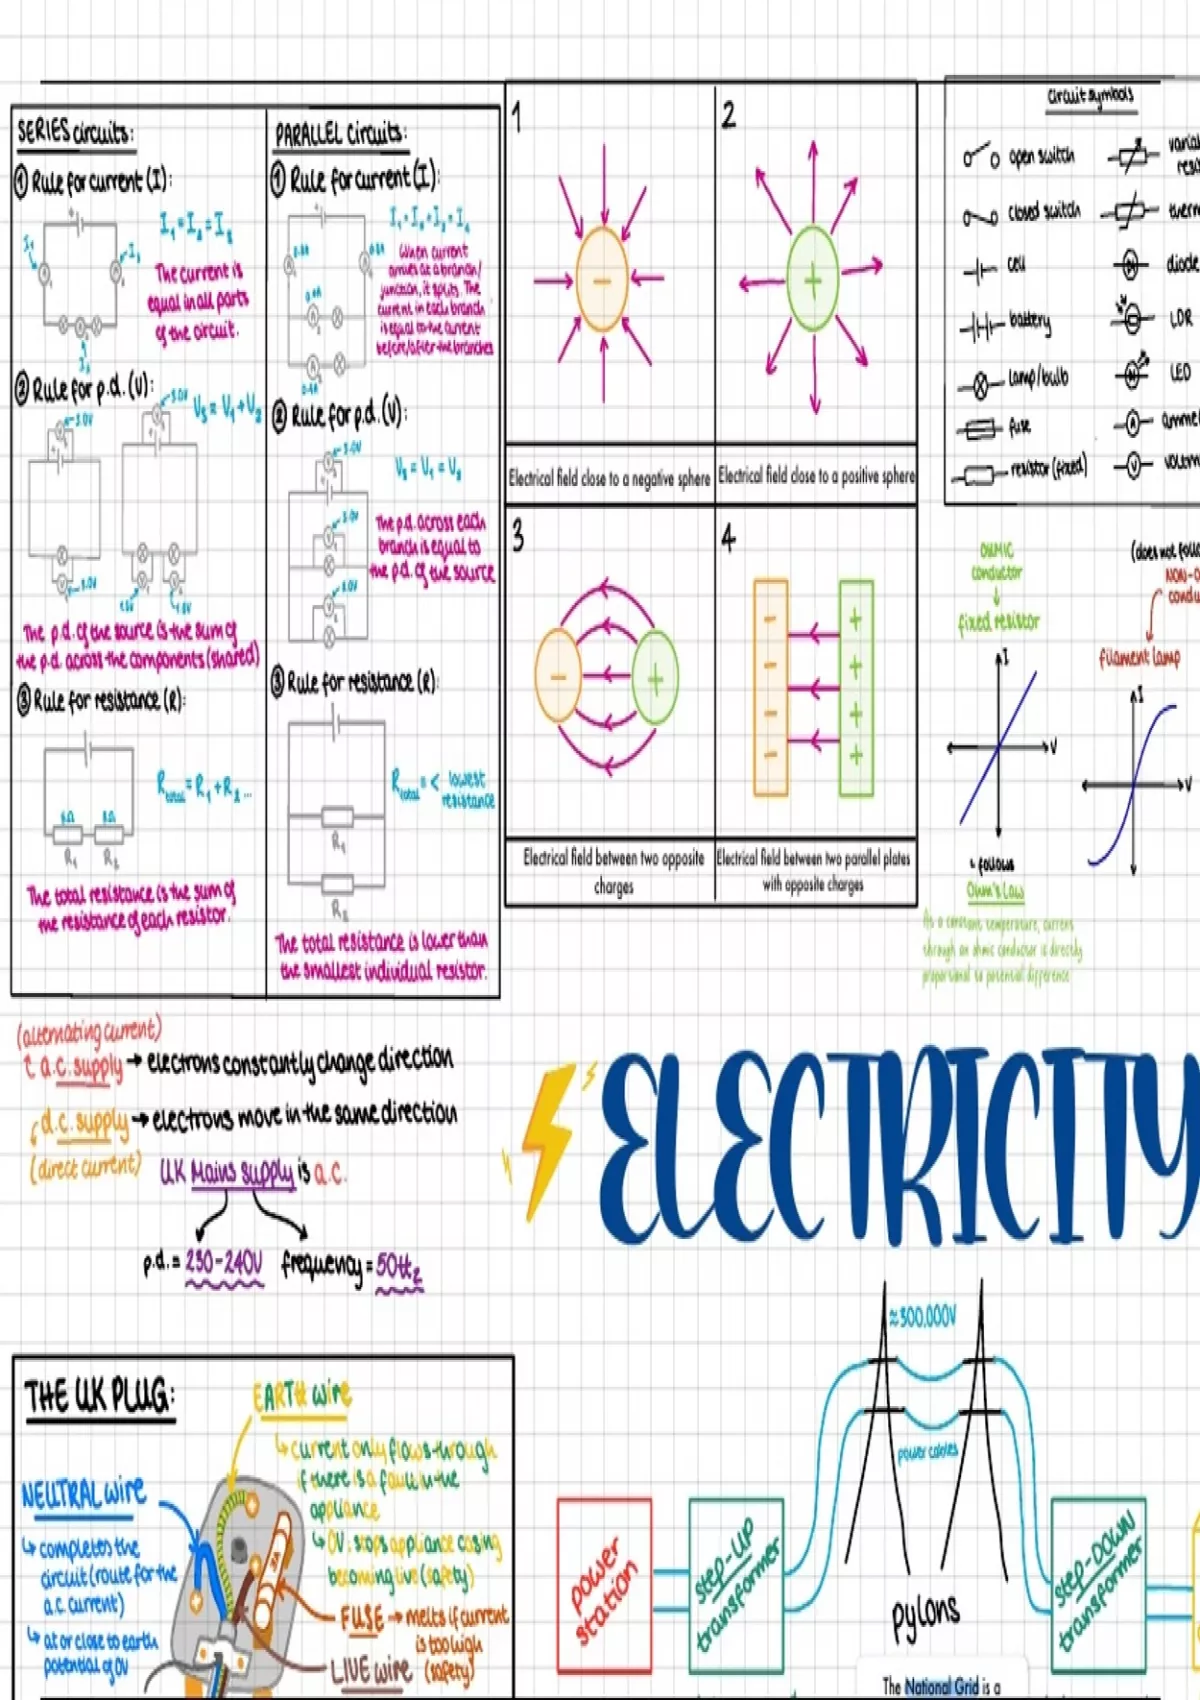 SERIES circuits:
① Rule for current (I):
I₁ = I₂ = I₃
I₁
I₂
I₃
The current is
equal in all parts
of the circuit.
② Rule for p.d. (V):
3.0V
3.0V
Vs = V₁ + V₂
3.0V
The p.d. of the source is the sum of
the p.d. across the components (shared)
③ Rule for resistance (R):
R total = R₁ + R₂ ...
R₁ R₂
The total resistance is the sum of
the resistance of each resistor.
PARALLEL circuits:
① Rule for current (I):
When current
arrives at a branch/
junction, it splits. The
current in each branch
is equal to the current
before/after the branches
② Rule for p.d. (V):
3.0V
3.0V
3.0V
The p.d. across each
branch is equal to
the p.d. of the source
③ Rule for resistance (R):
R total = < lowest
resistance
R₁
R₂
The total resistance is lower than
the smallest individual resistor.
1
Electrical field close to a negative sphere
2
Electrical field close to a positive sphere
3
Electrical field between two opposite
charges
4
Electrical field between two parallel plates
with opposite charges
circuit symbols
open switch
closed switch
cell
battery
lamp/bulb
fuse
resistor (fixed)
varia
resis
therm
diode
LDR
LED
A
ammet
V
voltm
OHMIC
conductor
fixed resistor
I
V
follows
Ohm's Law
At a constant temperature, current
through an ohmic conductor is directly
proportional to potential difference
(does not follo
NON-O
condu
filament lamp
I
V
(alternating current)
a.c. supply → electrons constantly change direction
d.c. supply → electrons move in the same direction
(direct current)
UK Mains supply is a.c.
p.d. = 230-240V frequency = 50Hz
ELECTRICITY
THE UK PLUG:
EARTH wire
current only flows through
if there is a fault in the
appliance
0V: stops appliance casing
becoming live (safety)
NEUTRAL wire
completes the
circuit (route for the
a.c. current)
at or close to earth
potential of 0V
FUSE → melts if current
is too high
(safety)
LIVE wire
≈300,000V
power cables
power
station
step-UP
transformer
pylons
step-DOWN
transformer
The National Grid is a